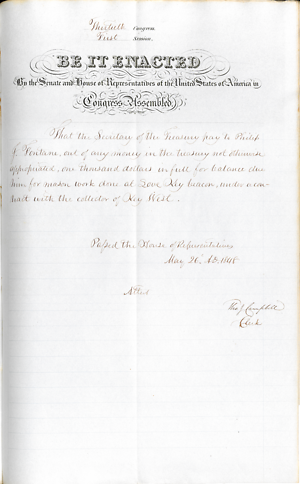 Thirtieth Congress
First Session
BE IT ENACTED
By the Senate and House of Representatives of the United States of America in
Congress Assembled
That the Secretary of the Treasury pay to Philip
J. Fontane, out of any money in the treasury not otherwise
appropriated, one thousand dollars in full for balance due
him for mason work done at Key beacon, under a con-
tract with the collector of Key West.
Passed the House of Representatives
May 26 1848
Attest
Tho J Campbell
Clerk